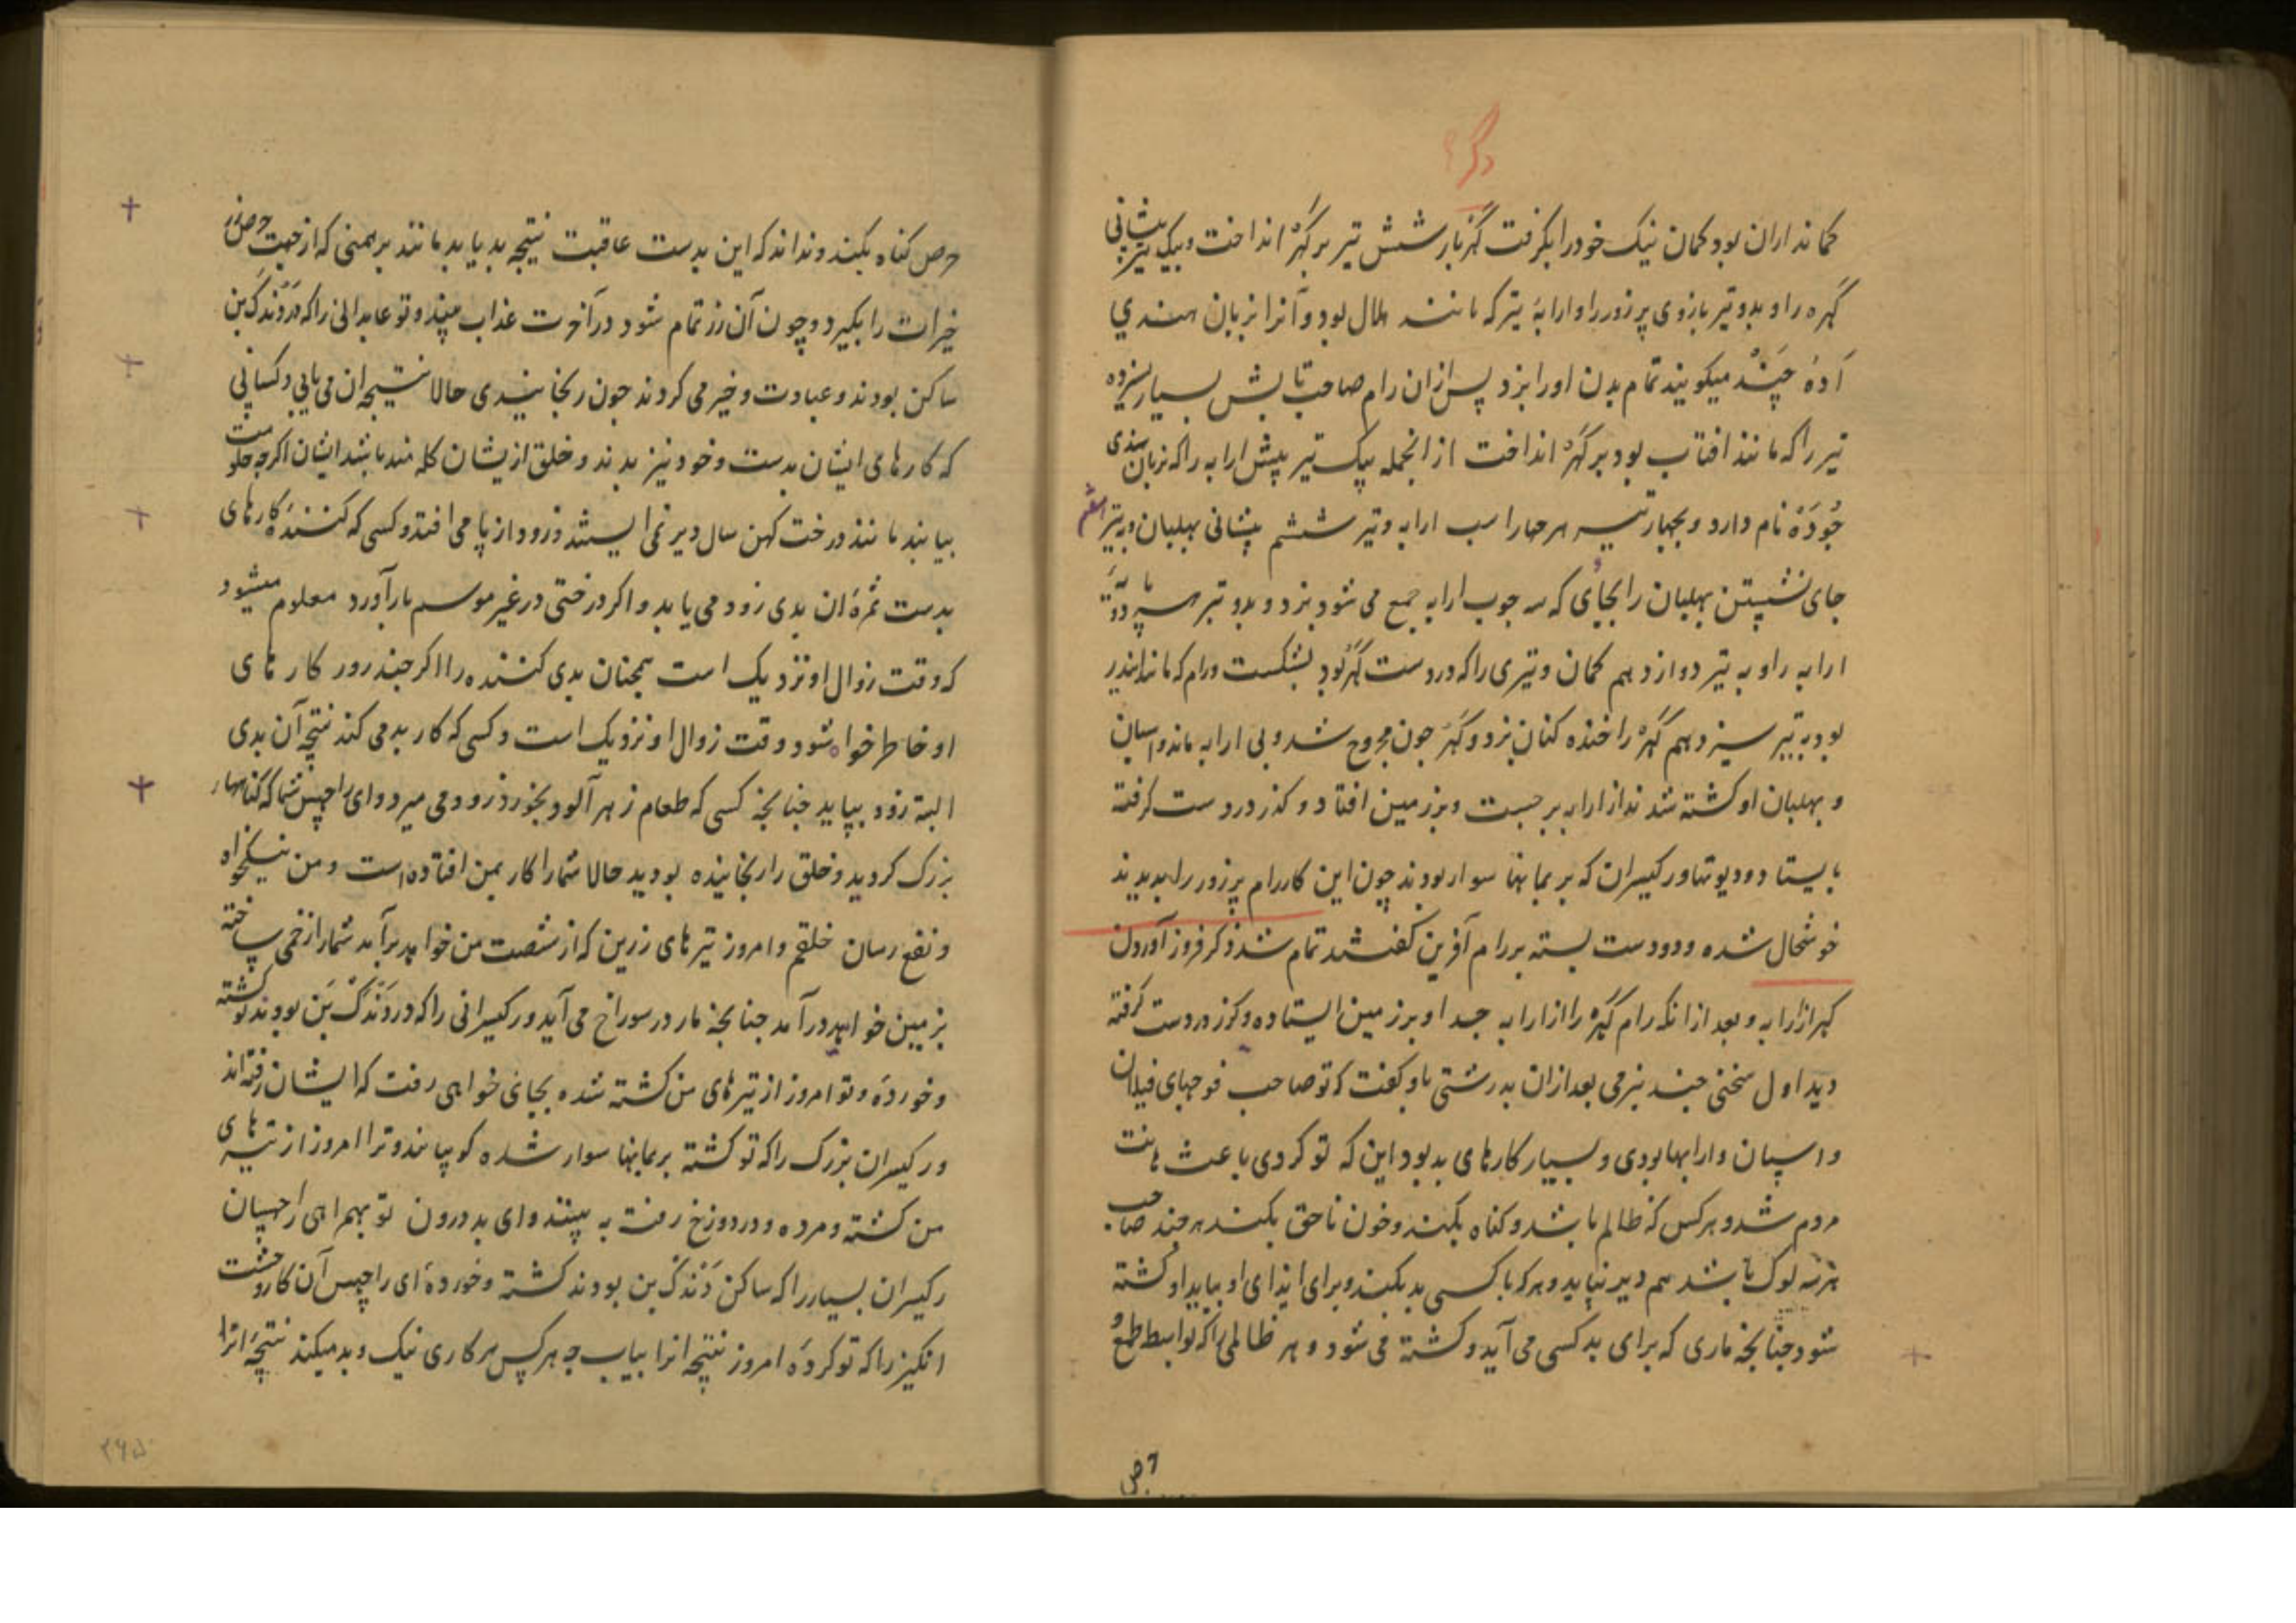 ذکر
کمانداران بود کمان نیک خود را بگرفت کهر بار شش تیر بر کهر انداخت و بیک تیر پیشانی
کهره را و بدو تیر بازوی پر زور را و ارابهٔ تیر که مانند هلال بود و آنرا بزبان هندی
آده چند میکویند تمام بدن اورا بزد پس ازان رام صاحب تابش بسیار سیزده
تیر را که مانند افتاب بود بر کهره انداخت از انجمله بیک تیر پیش ارابه را که بزبان هندی
جوده نام دارد و بچهار تیر هر چهار اسب ارابه و تیر ششم پیشانی بهلبان و به تیر هفتم
جای نشستن بهلبان را بجای که سه چوب ارابه جمع می شود بزد و بدو تیر
ارابه را و به تیر دوازدهم کمان و تیری را که در دست کهر بود بشکست و رام که مانند اندر
بود به تیر سیزدهم کهره را خنده کنان بزد و کهر چون مجروح شد و بی ارابه ماند و اسپان
و بهلبان او کشته شدند از ارابه برجست و بر زمین افتاد و کرز در دست کرفته
بایستاد و دیوتها و رکیسران که بر بمانها سوار بودند چون این کار رام پر زور را بدیدند
خوشحال شده و دو دست بسته بر رام آفرین کفتند تمام شد ذکر فرود آوردن
کهر از ارابه و بعد ازانکه رام کهره را از ارابه جدا و بر زمین ایستاده و کرز در دست کرفته
دید اول سخنی چند بنرمی بعد ازان بدرشتی باو کفت که تو صاحب فوجهای فیلان
و اسپان و ارابها بودی و بسیار کارهای بد بود این که تو کردی باعث اهانت
مردم شد و هر کس که ظالم باشد و کناه بکند و خون ناحق بکند هر چند صاحب
هر سه لوک باشد هم دیر نپاید و هر که با کسی بد بکند و برای ایذای او بیاید او کشته
شود چنانچه ماری که برای بد کسی می آید و کشته می شود و هر ظالمی را که بواسطه طمع و
حرص
حرص کناه بکند و نداند که این بدست عاقبت نتیجه بد بیابد مانند برهمنی که از جهت حرص زر
خیرات را بکیرد و چون آن زر تمام شود در آخرت عذاب بیند و تو عابدانی را که در دندک بن
ساکن بودند و عبادت و خیر می کردند چون رنجانیدی حالا نتیجه ان می یابی و کسانی
که کارهای ایشان بدست و خود نیز بدند و خلق از یشان کله مند باشد ایشان اکرچه حکومت
بیابند مانند درخت کهن سال دیر نمی ایستند و زود از پا می افتد و کسی که کنندهٔ کارهای
بدست ثمرهٔ ان بدی زود می یابد و اکر درختی در غیر موسم بار آورد معلوم میشود
که وقت زوال او نزدیک است همچنان بدی کننده را اکر چند روز کارهای
او خاطرخواه شود وقت زوال او نزدیک است و کسی که کار بد می کند نتیجه آن بدی
البته زود بیابد چنانچه کسی که طعام زهر آلود بخورد زود می میرد و ای راچهس شما که کناهها
بزرک کردید و خلق را رنجانیده بودید حالا شما را کار بمن افتاده است و من نیکخواه
و نفع رسان خلقم و امروز تیرهای زرین که از شصت من خواهد برآمد شما را زخمی ساخته
بزمین خواهد درآمد چنانچه مار در سوراخ می آید و رکیسرانی را که در دندک بن بودند تو کشته
و خوردهٔ و تو امروز از تیرهای من کشته شده بجای خواهی رفت که ایشان رفته اند
و رکیسران بزرک را که تو کشته بر بمانها سوار شده کو بیایند و ترا امروز از تیرهای
من کشته و مرده و در دوزخ رفت به بینند و ای بد درون تو بهمراهی راچهسان
رکیسران بسیار را که ساکن دندک بن بودند کشته و خوردهٔ ای راچهس آن کار وحشت
انکیز را که تو کردهٔ امروز نتیجه انرا بیاب چه هر کس هر کاری نیک و بد میکند نتیجهٔ انرا
۲۶۵